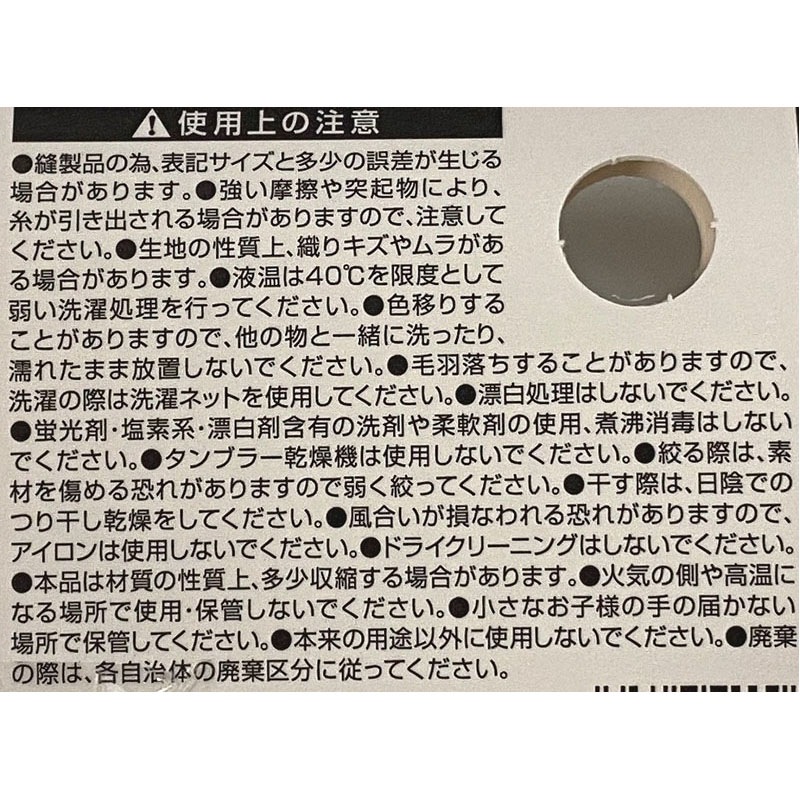 ⚠使用上の注意
●縫製品の為、表記サイズと多少の誤差が生じる
場合があります。●強い摩擦や突起物により、
糸が引き出される場合がありますので、注意して
ください。●生地の性質上、織りキズやムラがあ
る場合があります。●液温は40℃を限度として
弱い洗濯処理を行ってください。●色移りする
ことがありますので、他の物と一緒に洗ったり、
濡れたまま放置しないでください。●毛羽落ちすることがありますので、
洗濯の際は洗濯ネットを使用してください。●漂白処理はしないでください。
●蛍光剤・塩素系・漂白剤含有の洗剤や柔軟剤の使用、煮沸消毒はしない
でください。●タンブラー乾燥機は使用しないでください。●絞る際は、素
材を傷める恐れがありますので弱く絞ってください。●干す際は、日陰での
つり干し乾燥をしてください。●風合いが損なわれる恐れがありますので、
アイロンは使用しないでください。●ドライクリーニングはしないでください。
●本品は材質の性質上、多少収縮する場合があります。●火気の側や高温に
なる場所で使用・保管しないでください。●小さなお子様の手の届かない
場所で保管してください。●本来の用途以外に使用しないでください。●廃棄
の際は、各自治体の廃棄区分に従ってください。